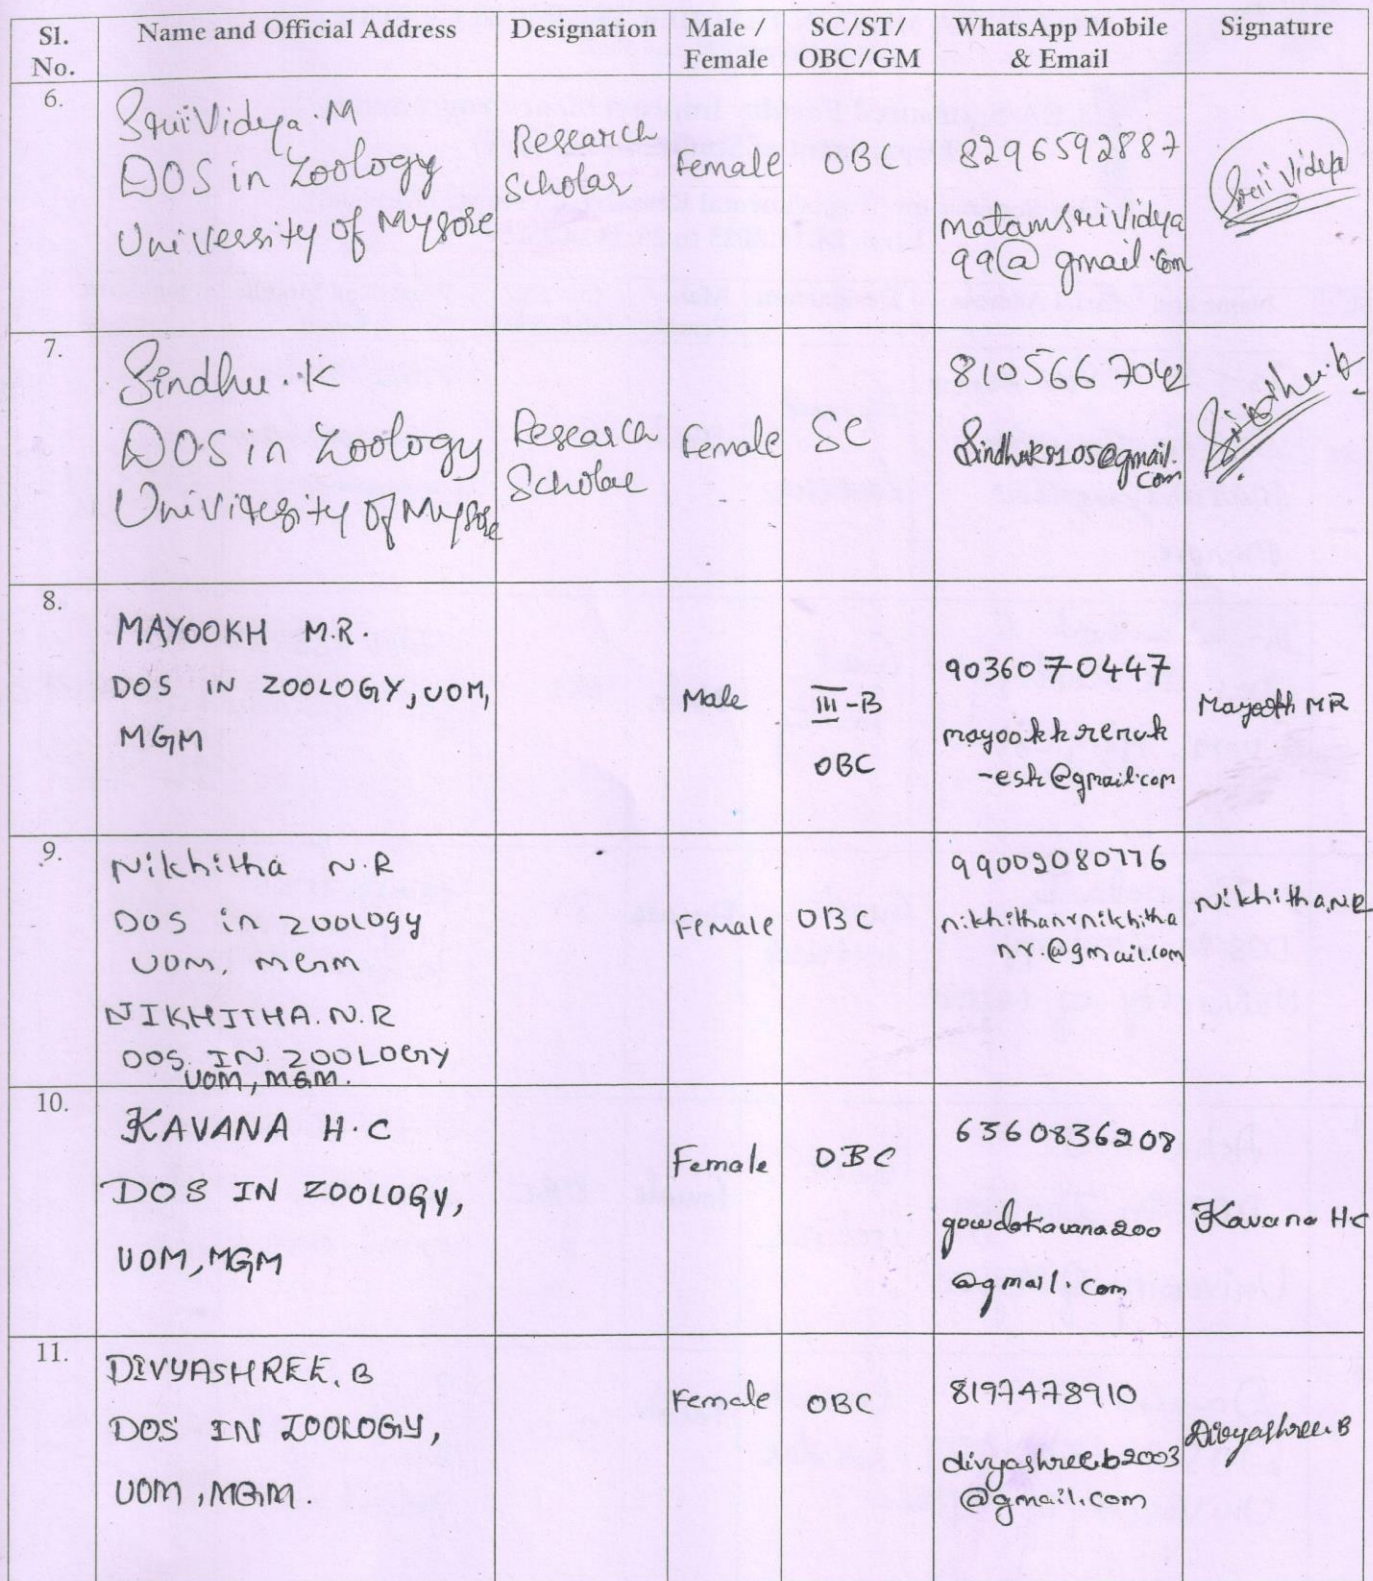 Sl. No. Name and Official Address Designation Male / Female SC/ST/ OBC/GM WhatsApp Mobile & Email Signature
6.
SriiVidya.M
DOS in Zoology
University of Mysore
Research
Scholar
Female
OBC
8296592887
matamsrividya
99@gmail.com
Srii Vidya
7.
Sindhu.K
DOS in Zoology
University of Mysore
Research
Scholar
Female
SC
8105667042
Sindhuk8105@gmail.
com
Sindhu.k
8.
MAYOOKH M.R.
DOS IN ZOOLOGY, UOM,
MGM
Male
III-B
OBC
9036070447
mayookhrenuk
-esh@gmail.com
Mayookh MR
9.
Nikhitha N.R
DOS in zoology
UOM, MGM
NIKHITHA.N.R
DOS. IN ZOOLOGY
UOM, MGM.
Female
OBC
99002080776
nikhithanrnikhitha
nr.@gmail.com
Nikhitha.N.R
10.
KAVANA H.C
DOS IN ZOOLOGY,
UOM, MGM
Female
OBC
6360836208
gowdakavana200
@gmail.com
Kavana H C
11.
DIVYASHREE. B
DOS IN ZOOLOGY,
UOM, MGM.
Female
OBC
8197478910
divyashree.b2003
@gmail.com
Divyashree.B